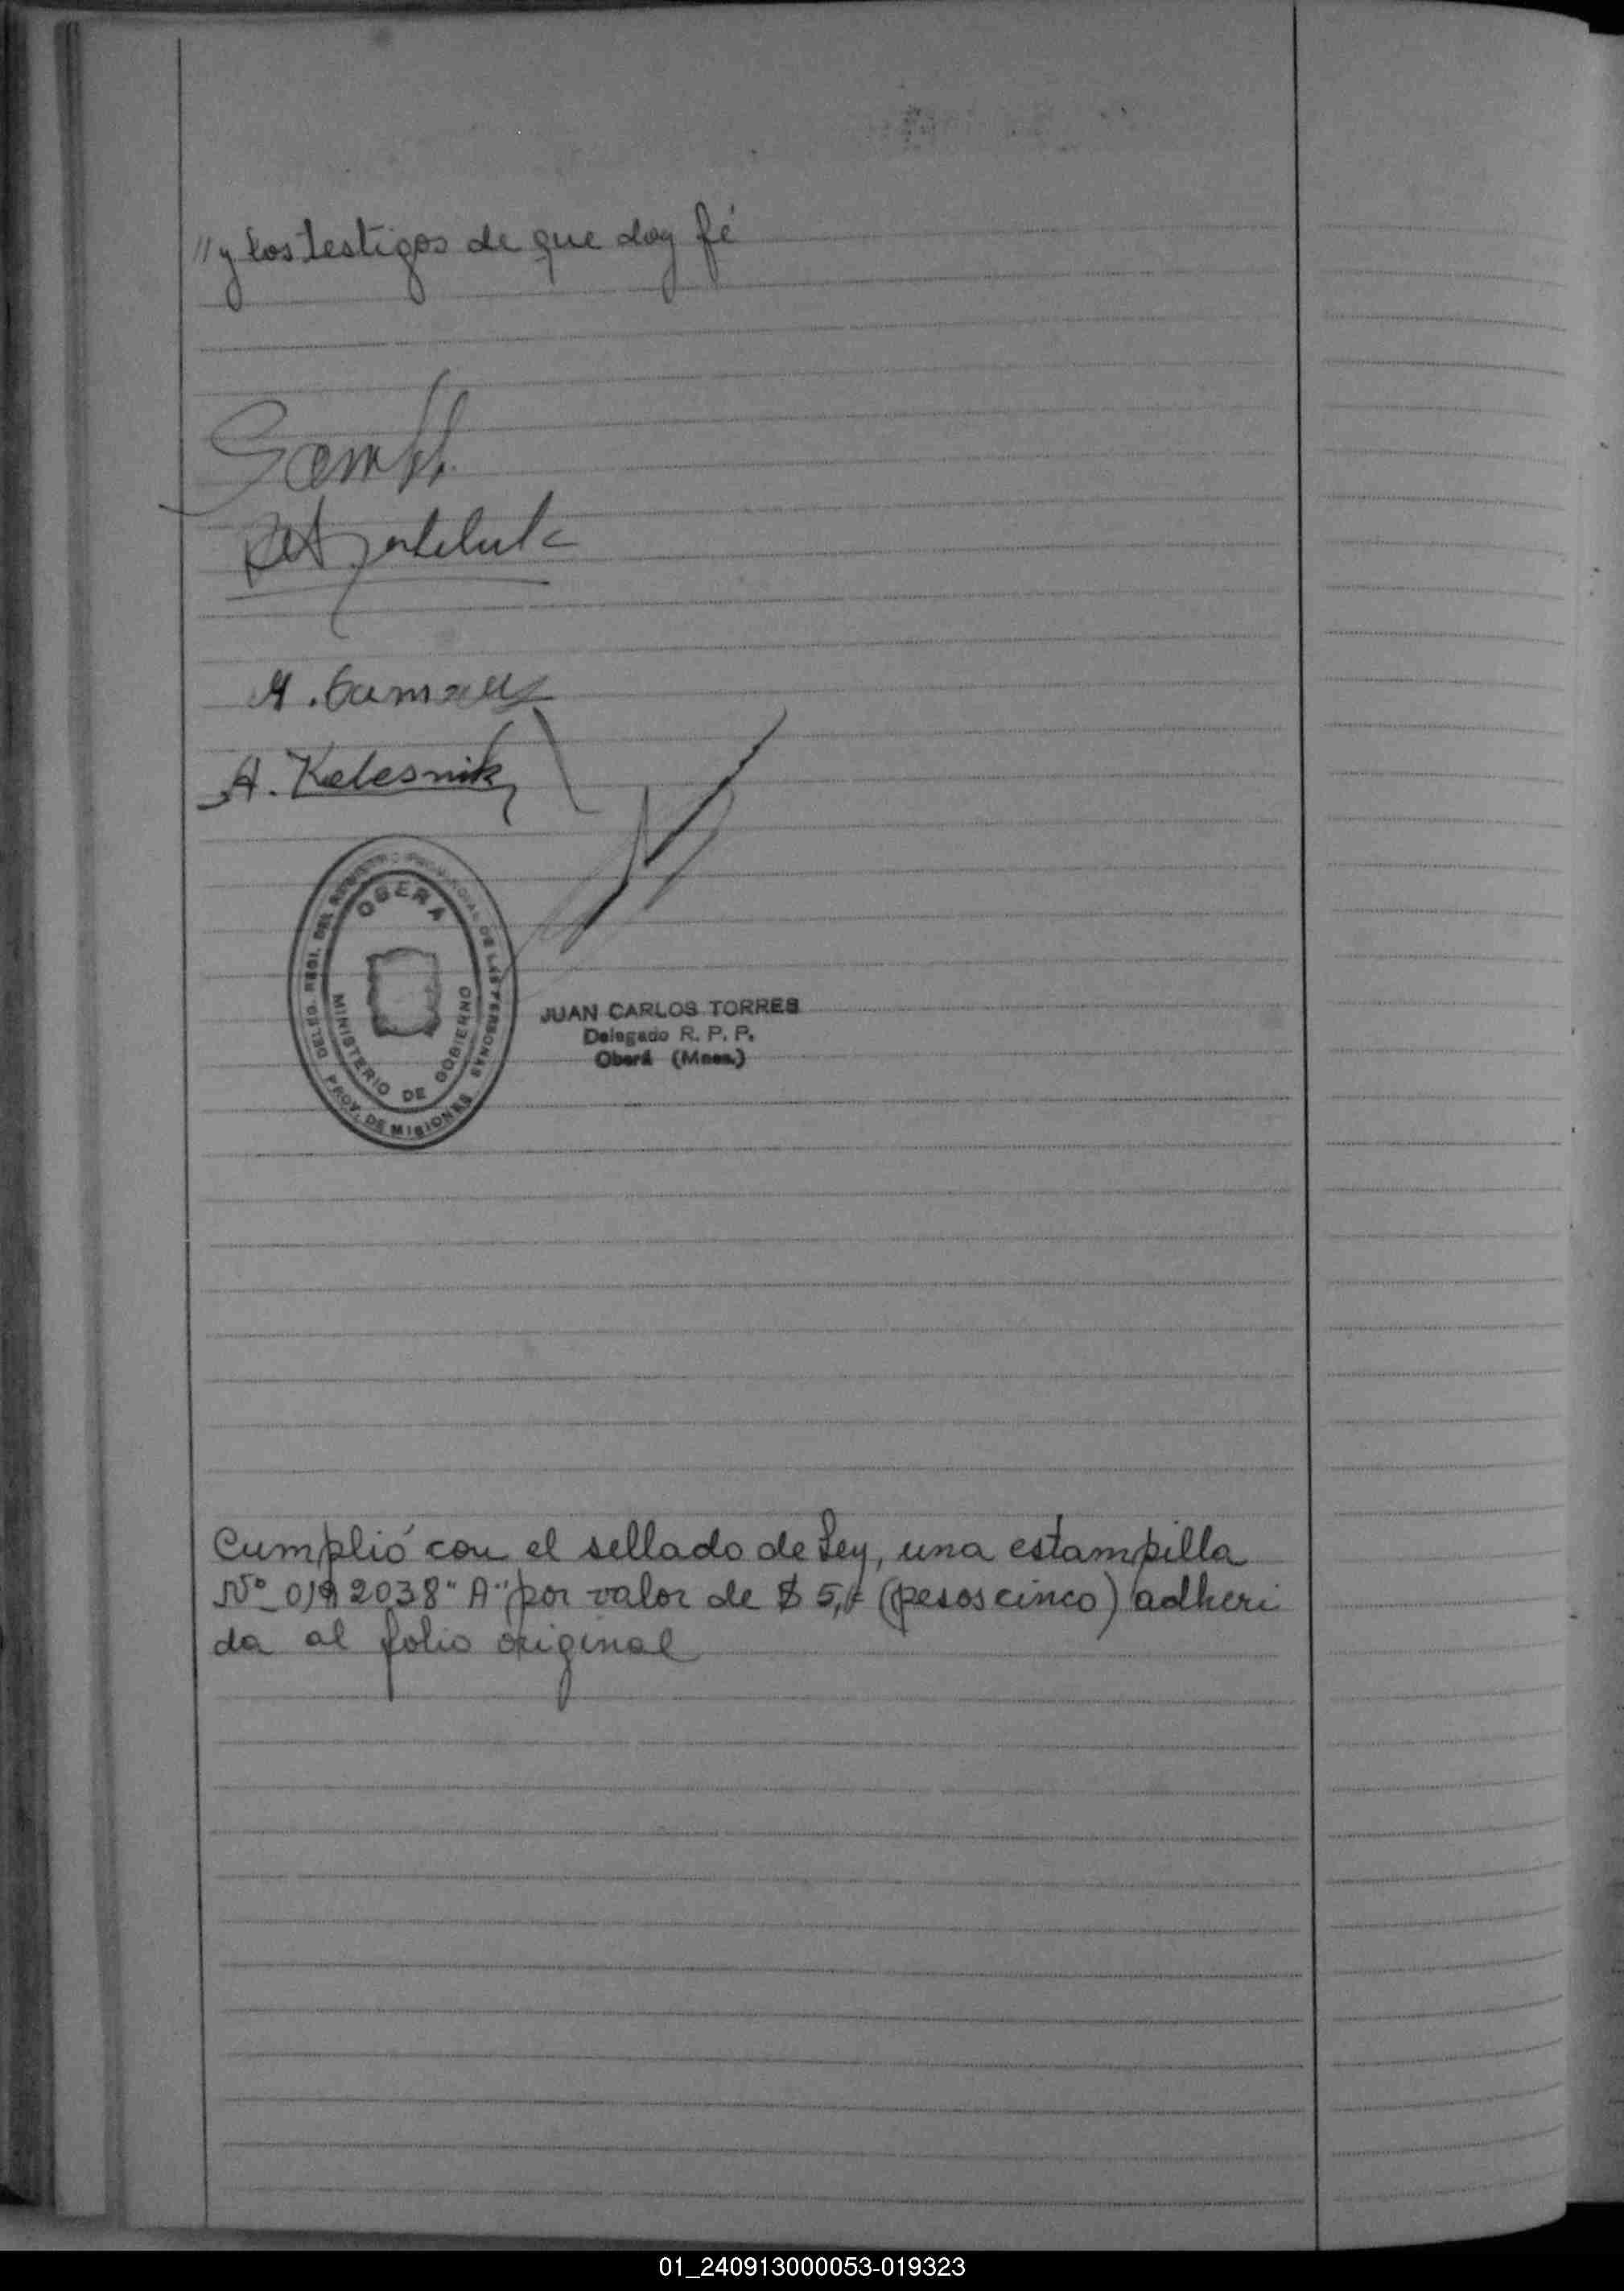 "y los testigos de que doy fé
A. Kolesnik
OBERA
DELEG. REGI. DEL REGISTRO PROVINCIAL DE LAS PERSONAS
MINISTERIO DE GOBIERNO
PROV. DE MISIONES
JUAN CARLOS TORRES
Delegado R. P. P.
Oberá (Mnes.)
Cumplió con el sellado de Ley, una estampilla
2038 "A" por valor de $ 5,- (pesos cinco) adheri
da al folio original
01_240913000053-019323